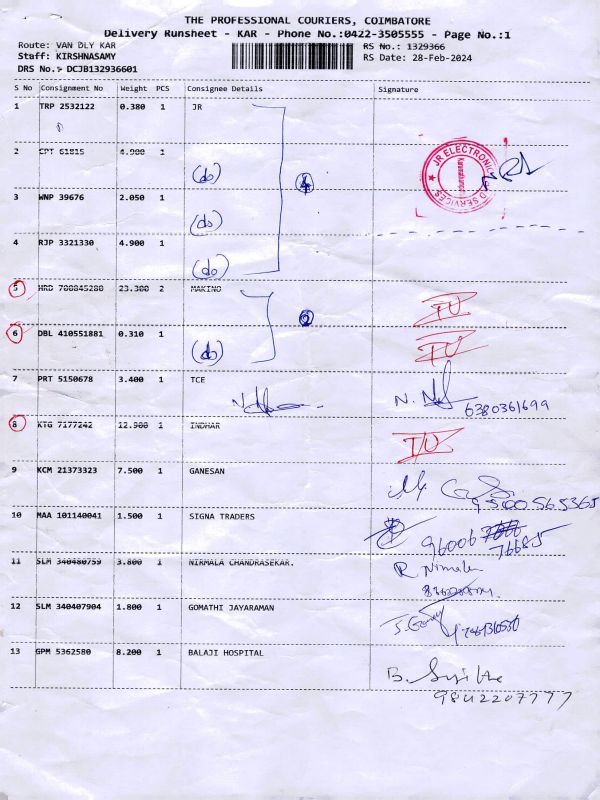 THE PROFESSIONAL COURIERS, COIMBATORE
Delivery Runsheet - KAR - Phone No.:0422-3505555 - Page No.:1
Route: VAN DLY KAR RS No.: 1329366
Staff: KIRSHNASAMY RS Date: 28-Feb-2024
DRS No.:- DCJB132936601
S No Consignment No Weight PCS Consignee Details Signature
1 TRP 2532122 0.380 1 JR
2 CPT 61815 4.900 1 (do) 4
JR ELECTRONIC
3 WNP 39676 2.050 1 (do)
4 RJP 3321330 4.900 1 (do)
5 HRD 700845280 23.300 2 MAKINO 2 IU
6 DBL 410551881 0.310 1 (do) IU
7 PRT 5150678 3.400 1 TCE N. 6380361699
8 KTG 7177242 12.900 1 INDHAR IU
9 KCM 21373323 7.500 1 GANESAN 9500565365
10 MAA 101140041 1.500 1 SIGNA TRADERS 96006 76685
11 SLM 340480759 3.800 1 NIRMALA CHANDRASEKAR. R Nirmala
12 SLM 340407904 1.800 1 GOMATHI JAYARAMAN
13 GPM 5362580 8.200 1 BALAJI HOSPITAL B.
9842207777